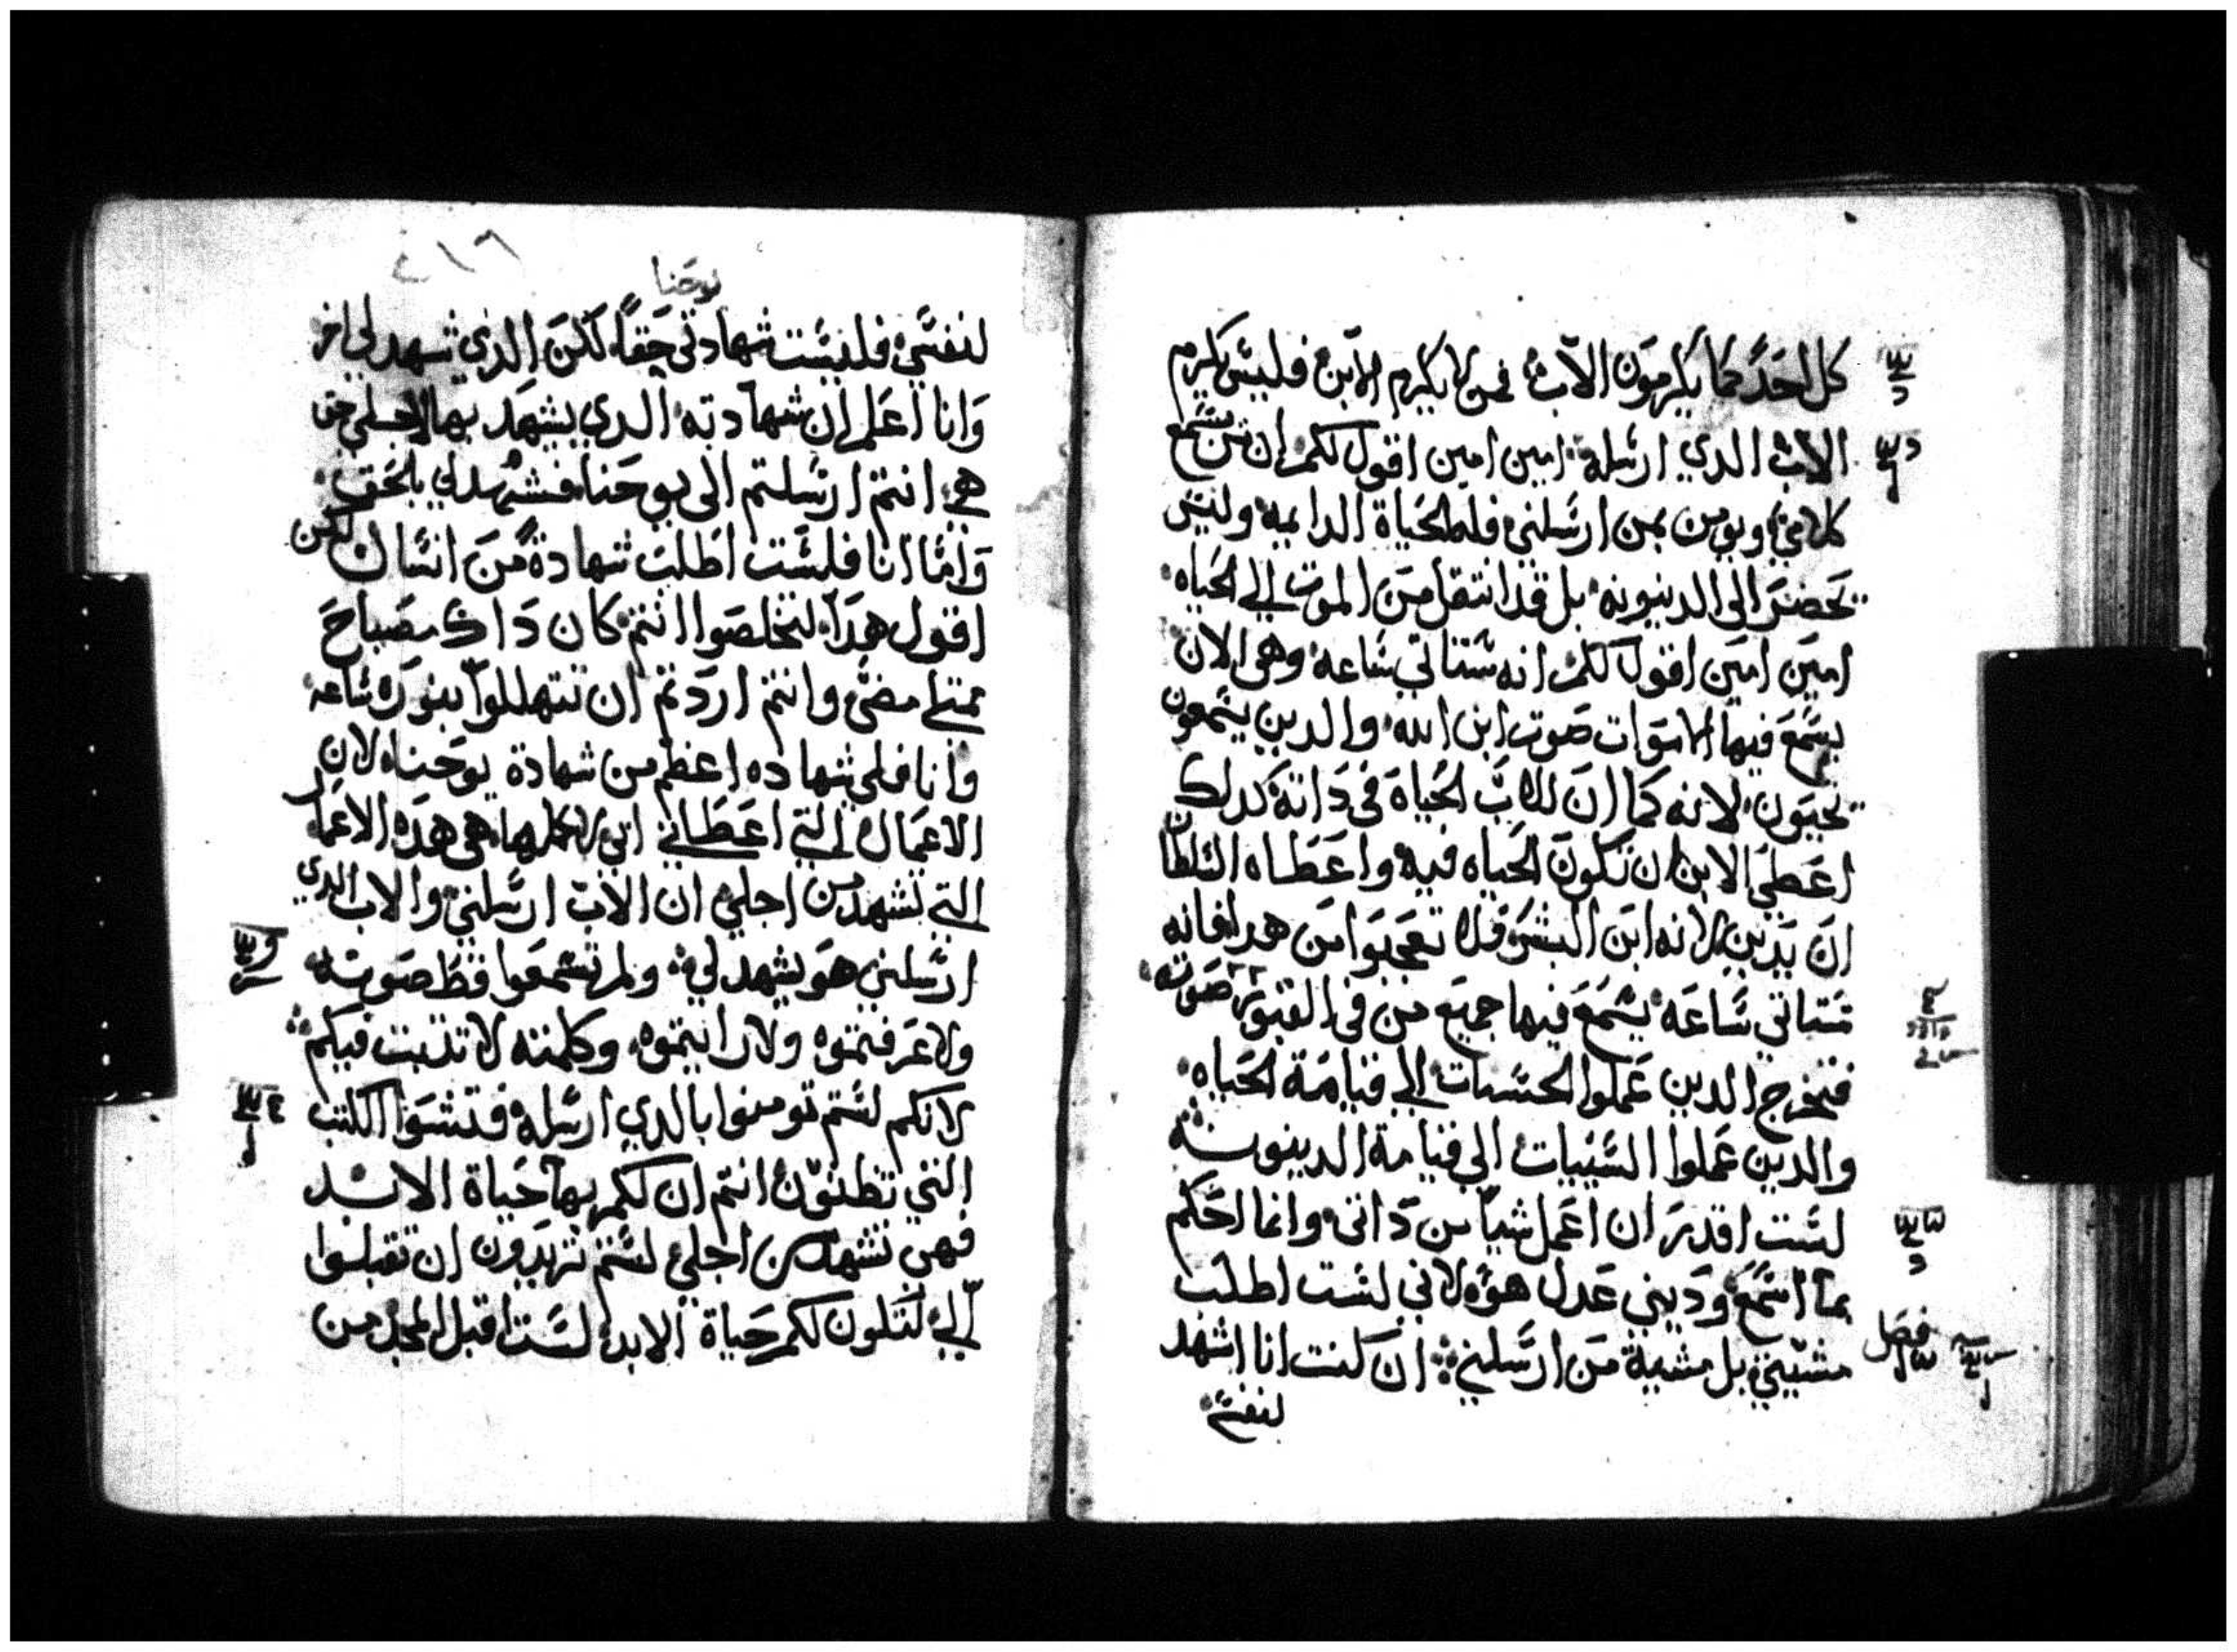 كل احد كما يكرمون الاب فمن لا يكرم الابن فليس يكرم
الاب الدي ارسله امين امين اقول لكم ان من يسمع
كلامي ويومن بمن ارسلني فله الحياة الدايمه وليس
يحضر الى الدينونه بل قد انتقل من الموت الي الحياه
امين امين اقول لكم انه ستاتي ساعه وهي الان
يسمع فيها الاموات صوت ابن الله والدين يسمعون
يحيون لانه كما ان للاب الحياة في داته كدلك
اعطى الابن ان تكون الحياه فيه واعطاه السلطان
ان يدين لانه ابن البشر فلا تعجبوا من هدا فانه
ستاتي ساعه يسمع فيها جميع من في القبور صوته
فيخرج الدين عملوا الحسنات الي قيامة الحياه
والدين عملوا السييات الي قيامة الدينونه
لست اقدر ان اعمل شيا من داتي وانما احكم
بما اسمع وديني عدل هو لاني لست اطلب
مشيتي بل مشية من ارسلني ان كنت انا اشهد
لنفسي
فصل
يوحنا
لنفسي فليست شهادتي حقا لكن الدي شهد لي اخر
وانا اعلم ان شهادته الدي يشهد بها لاجلي حق
هي انتم ارسلتم الى يوحنا فشهد لي بالحق
واما انا فلست اطلب شهادة من انسان لكن
اقول هدا لتخلصوا انتم كان داك مصباح
ممتلي مضي وانتم اردتم ان تتهللوا بنوره ساعه
وانا فلي شهاده اعظم من شهادة يوحنا لان
الاعمال التي اعطاني ابي لاكملها هي هده الاعمال
التي تشهد من اجلي ان الاب ارسلني والاب الدي
ارسلني هو يشهد لي ولم تسمعوا قط صوته
ولا عرفتموه ولا رايتموه وكلمته لا تتبت فيكم
لانكم لستم تومنوا بالدي ارسله فتشوا الكتب
التي تظنون انتم ان لكم بها حياة الابد
فهي تشهد من اجلي لستم تريدون ان تقبلوا
الي لتكون لكم حياة الابد لست اقبل المجد من